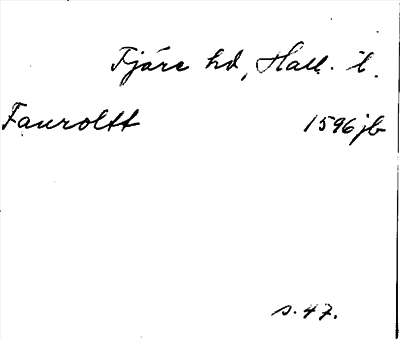 Fjäre hd, Hall. l.
Fauroltt 1596 jb
s. 47.